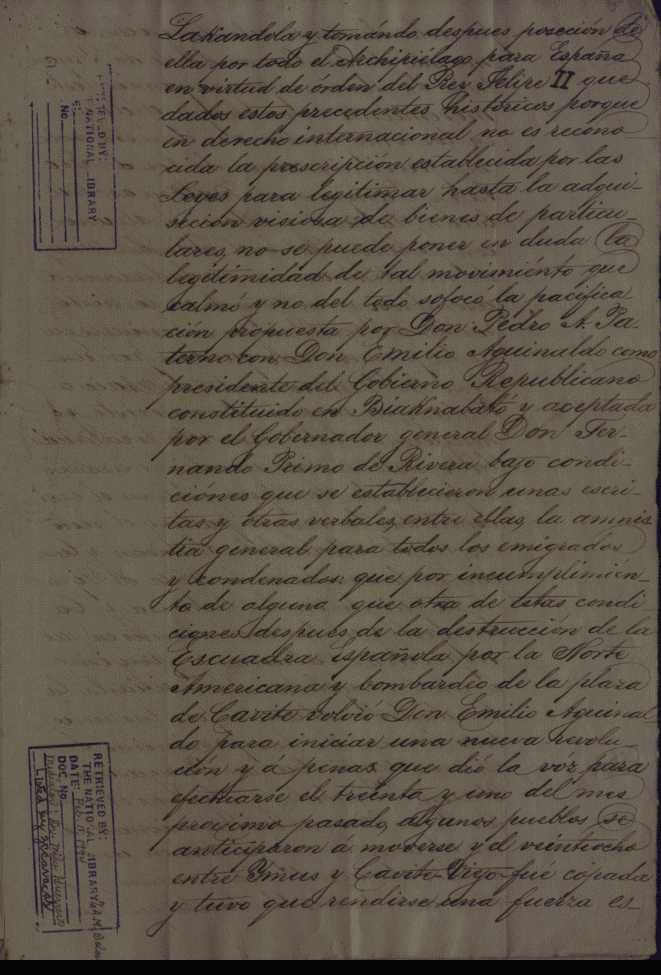 Lakandola y tomándo despues poseción de
ella por todo el Archipiélago para España
en virtud de órden del Rey Felipe II que
dados estos precedentes históricos porque
en derecho internacional no es recono
cida la prescripción establecida por las
Leyes para legitimar hasta la adqui-
sición visiosa de bienes de particu-
lares, no se puede poner en duda la
legitimidad de tal movimiénto que
calmó y no del todo sofocó la pacifica-
ción propuesta por Don Pedro A. Pa-
terno con Don Emilio Aguinaldo como
presidente del Gobierno Republicano
constituido en Biaknabató y aceptada
por el Gobernador general Don Fer-
nando Primo de Rivera bajo condi-
ciónes que se establecieron unas escri-
tas y otras verbales, entre ellas la amnis
tia general para todos los emigrados
y condenados: que por incumplimién-
to de alguna que otra de estas condi-
ciones despues de la destrucción de la
Escuadra española por la Norte
Americana y bombardéo de la plaza
de Cavite volvió Don Emilio Aguinal
do para iniciar una nueva revolu-
ción y á penas que dió la voz para
efectuarse el treinta y uno del mes
proximo pasado, algunos pueblos se
anticiparon a moverse y el veintiocho
entre Ymus y Cavite-Viejo fué copada
y tuvo que rendirse una fuerza es-
RETRIEVED BY:
NATIONAL LIBRARY
No.
RETRIEVED BY:
THE NATIONAL LIBRARY
DATE: Feb.
DOC. No.